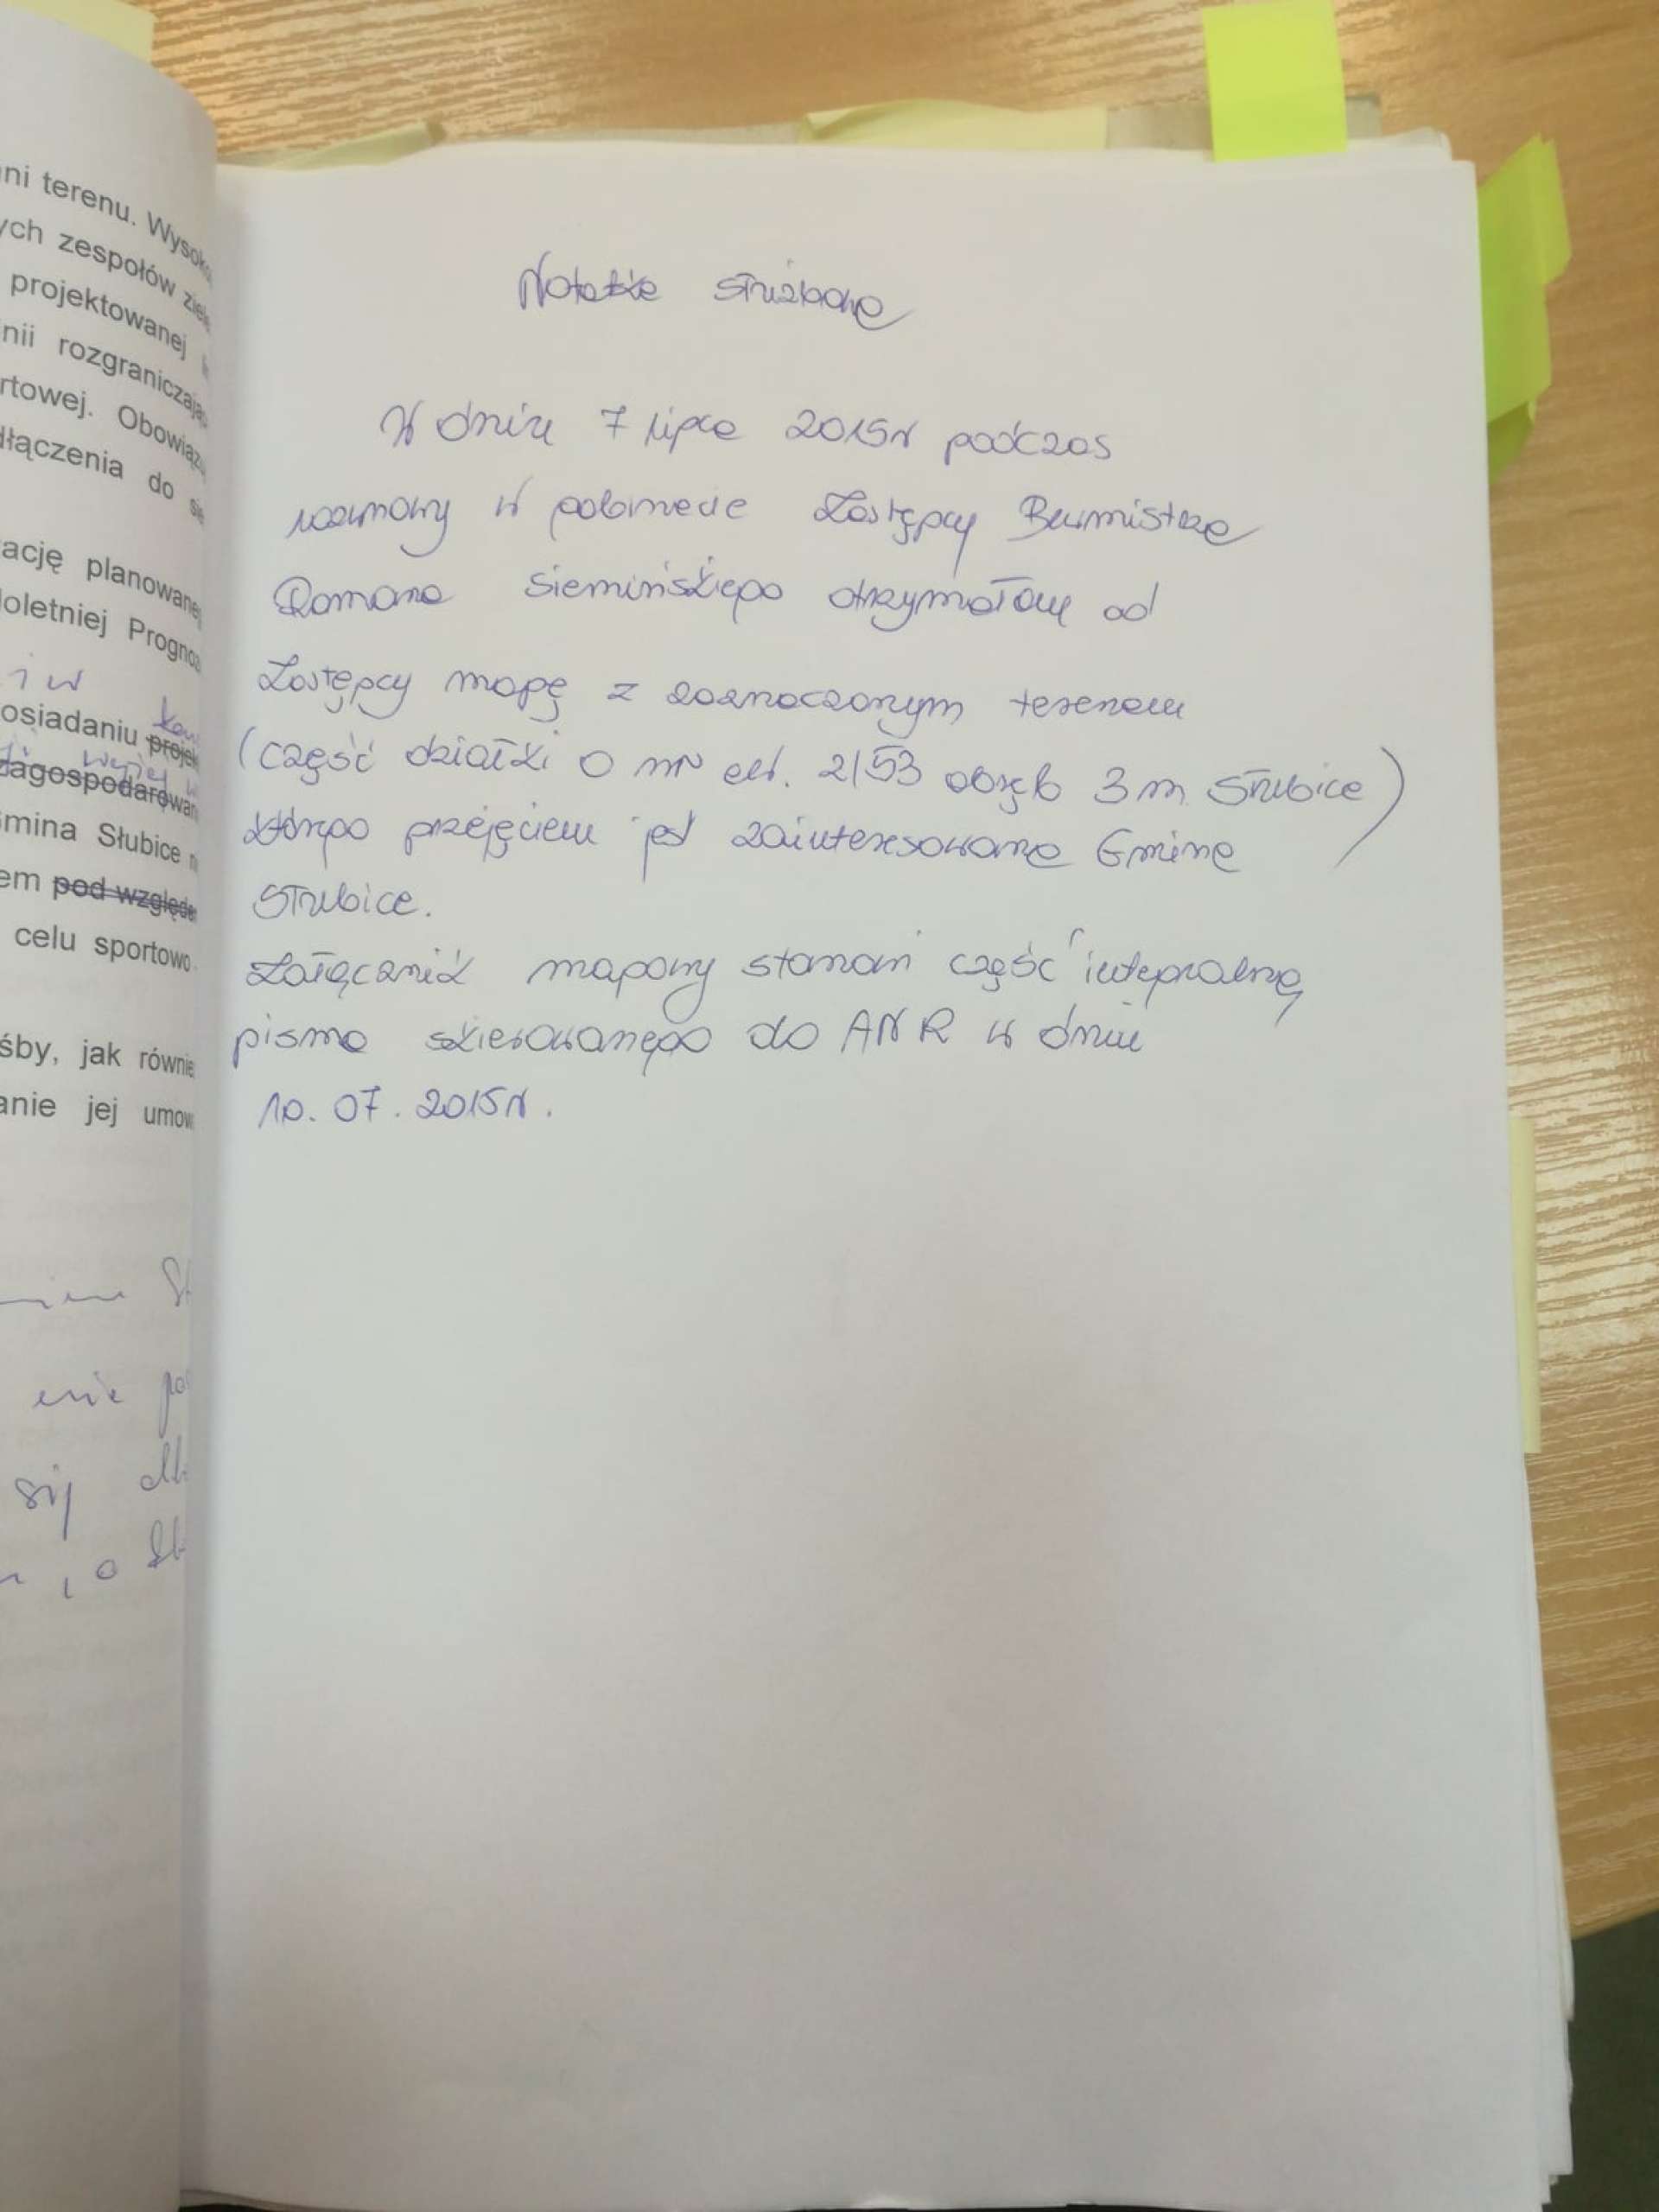 ni terenu. Wysok
ych zespołów ziel
projektowanej
nii rozgraniczają
rtowej. Obowiązu
dłączenia do sie
ację planowanej
loletniej Progno
i w
osiadaniu projek
zagospodarowan
Gmina Słubice n
em pod względe
celu sportowo
śby, jak równie
anie jej umow
się
Notatka służbowa
W dniu 7 lipca 2015r podczas
rozmowy w gabinecie Zastępcy Burmistrza
Romana Siemińskiego otrzymałam od
Zastępcy mapę z zaznaczonym terenem
(część działki o nr ew. 2/53 obręb 3 m. Słubice)
którego przejęciem jest zainteresowana Gmina
Słubice.
Załącznik mapowy stanowi część integralną
pisma skierowanego do ANR w dniu
10.07.2015r.